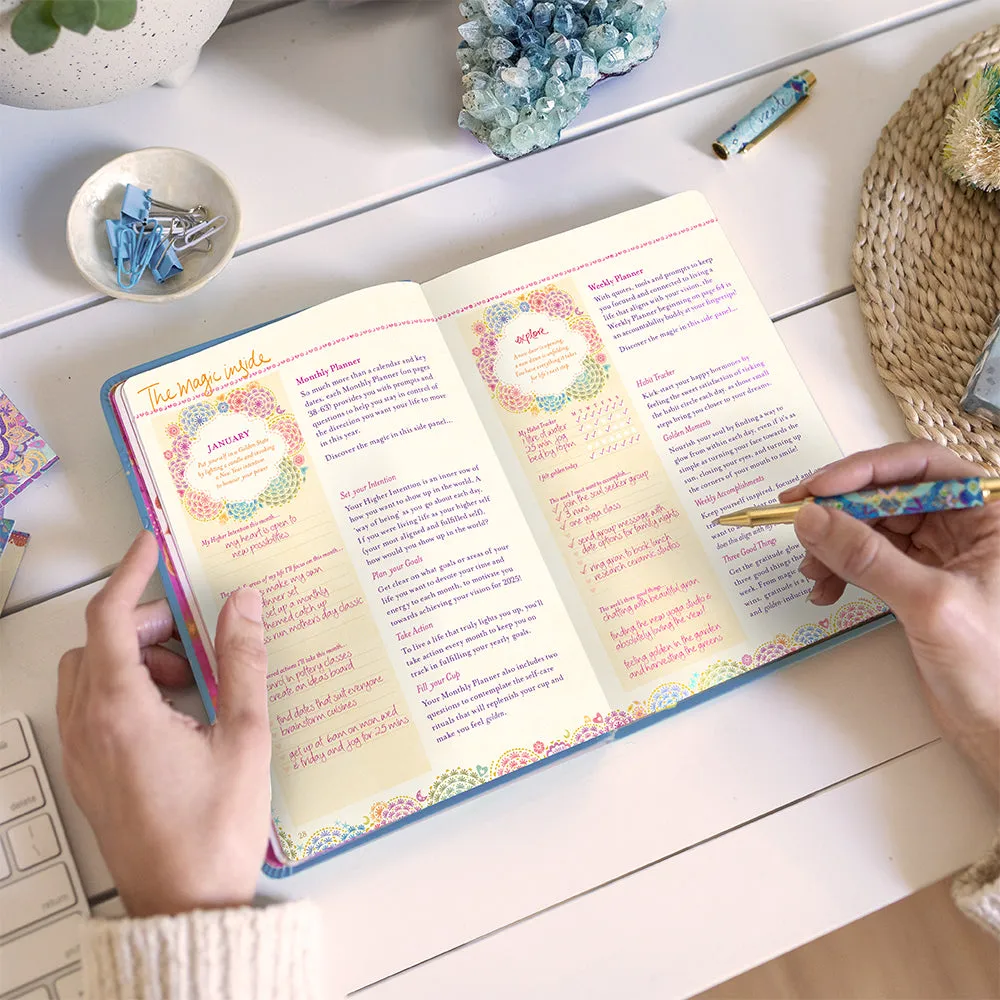 The Magic inside
JANUARY
Put yourself in a Golden State
by lighting a candle and creating
a New Year intention
to honour your power.
My Higher Intention this month:
my heart is open to
new possibilities
area of my life I'll focus on this month...
make my own
set up a monthly
themed catch up
run mothers day class
actions I'll take this month:
enrol in pottery classes
create an ideas board
find dates that suit everyone
brainstorm cuisines
get up at 6am on mon wed
& friday and jog for 25 mins
28
Monthly Planner
So much more than a calendar and key
dates, each Monthly Planner (on pages
38-63) provides you with prompts and
questions to help you stay in control of
the direction you want your life to move
in this year.
Discover the magic in this side panel...
Set your Intention
Your Higher Intention is an inner vow of
how you want to show up in the world. A
'way of being' as you go about each day.
If you were living life as your higher self
(your most aligned and fulfilled self),
how would you show up in the world?
Plan your Goals
Get clear on what goals or areas of your
life you want to devote your time and
energy to each month, to motivate you
towards achieving your vision for 2025!
Take Action
To live a life that truly lights you up, you'll
take action every month to keep you on
track in fulfilling your yearly goals.
Fill your Cup
Your Monthly Planner also includes two
questions to contemplate the self-care
rituals that will replenish your cup and
make you feel golden.
explore
A new door is opening,
a new dream is unfolding.
You have everything it takes
for life's next step.
My Habit Tracker
1 litre of water
25 min jog
bed by 10pm
I felt golden today
This week I must/want to accomplish...
join the soul seeker group
3 runs
one yoga class
send group message with
date options for family nights
ring gran to book lunch
research ceramic studios
This week's three good things...
chatting with beautiful gran
finding the new yoga studio &
absolutely loving the view!
feeling golden in the garden
and harvesting the greens
Weekly Planner
With quotes, tools and prompts to keep
you focused and connected to living a
life that aligns with your vision, the
Weekly Planner beginning on page 64 is
an accountability buddy at your fingertips!
Discover the magic in this side panel...
Habit Tracker
Kick-start your happy hormones by
feeling the satisfaction of ticking
the habit circle each day, as those small
steps bring you closer to your dreams.
Golden Moments
Nourish your soul by finding a way to
glow from within each day, even if it's as
simple as turning your face towards the
sun, closing your eyes, and turning up
the corners of your mouth to smile!
Weekly Accomplishments
Keep yourself inspired, focused and
want to
does this align with my
Three Good Things
Get the gratitude glow
three good things that
week. From magic
wins, gratitude is a
and golden-inducing
create
delete
return